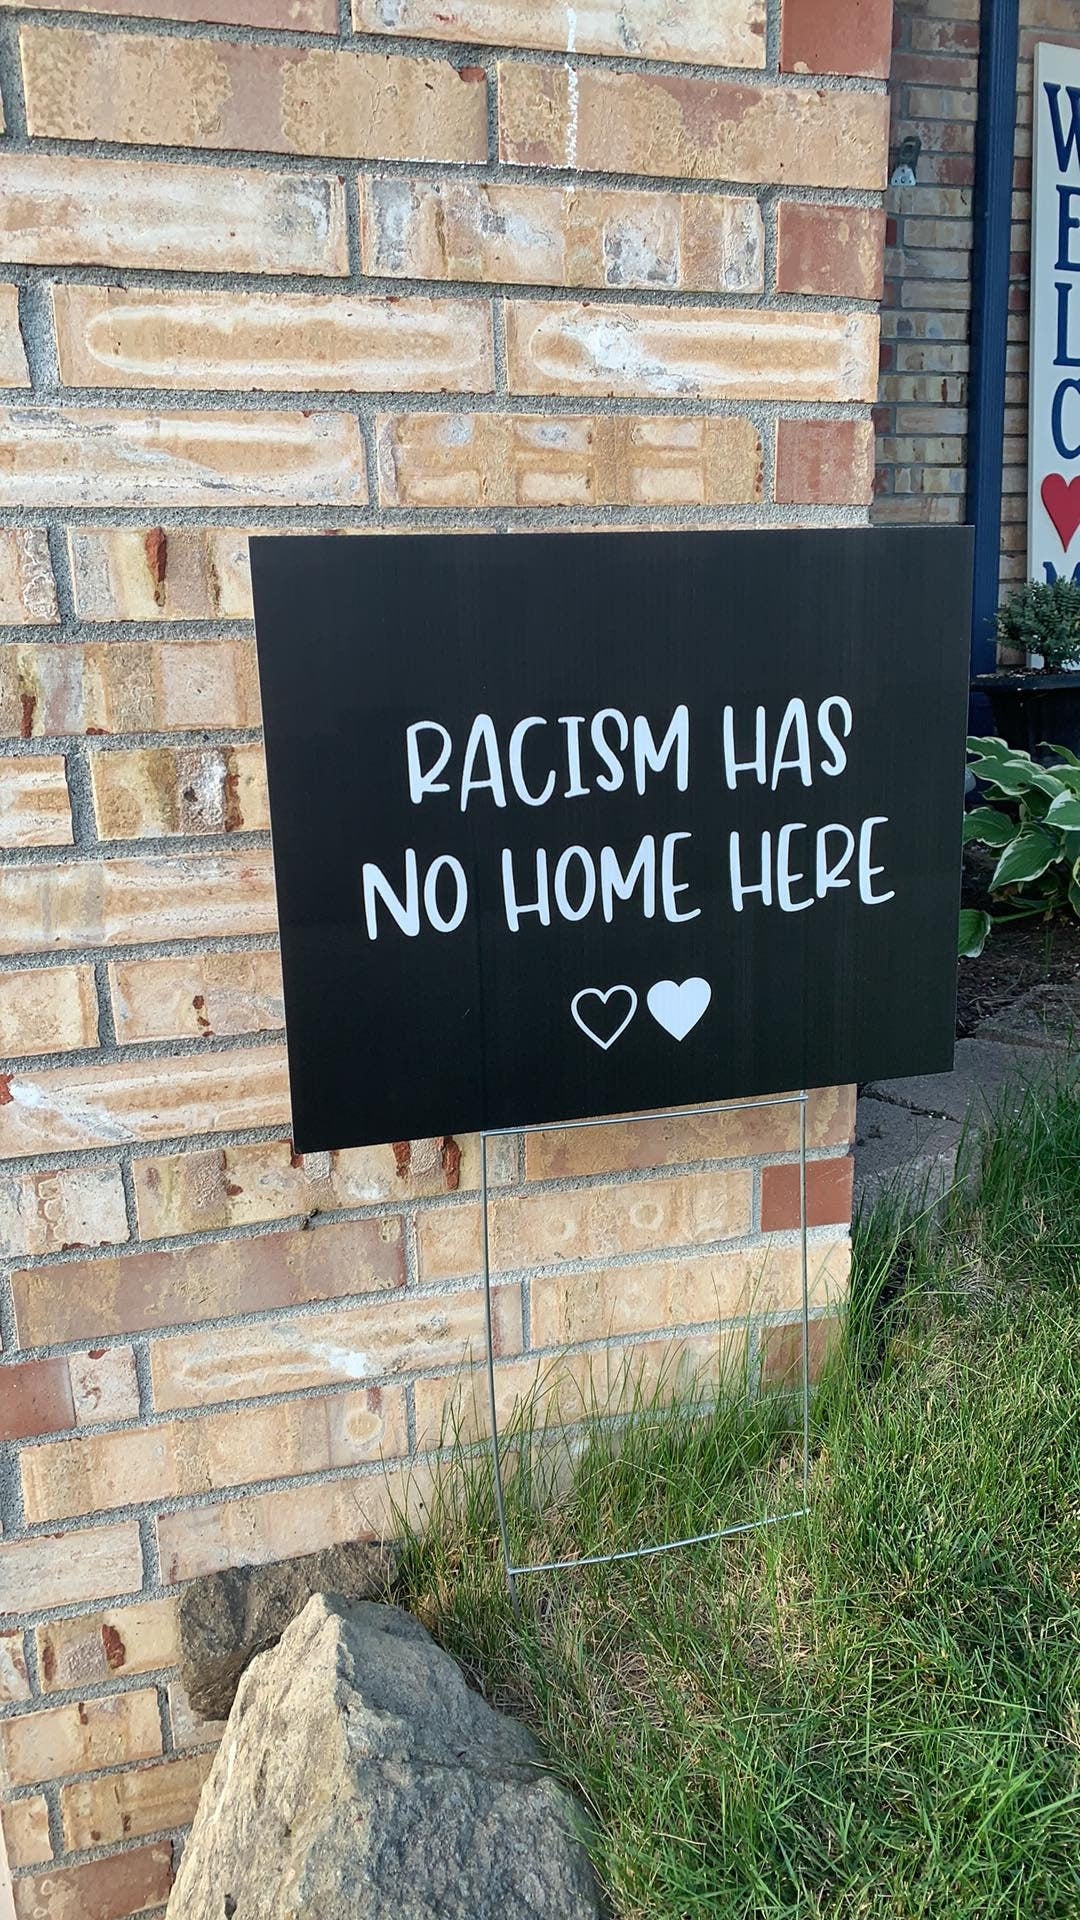 RACISM HAS
NO HOME HERE
W
E
L
C
M